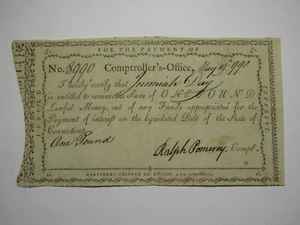 FOR THE PAYMENT OF
No. 8990 Comptroller's-Office, May 19 1790
I hereby certify that Jeremiah Day
is entitled to receive the Sum of ONE POUND
Lawful Money, out of any Funds appropriated for the
Payment of interest on the liquidated Debt of the State of
Connecticut.
One Pound
Ralph Pomeroy Compt.
HARTFORD: PRINTED BY HUDSON AND GOODWIN.